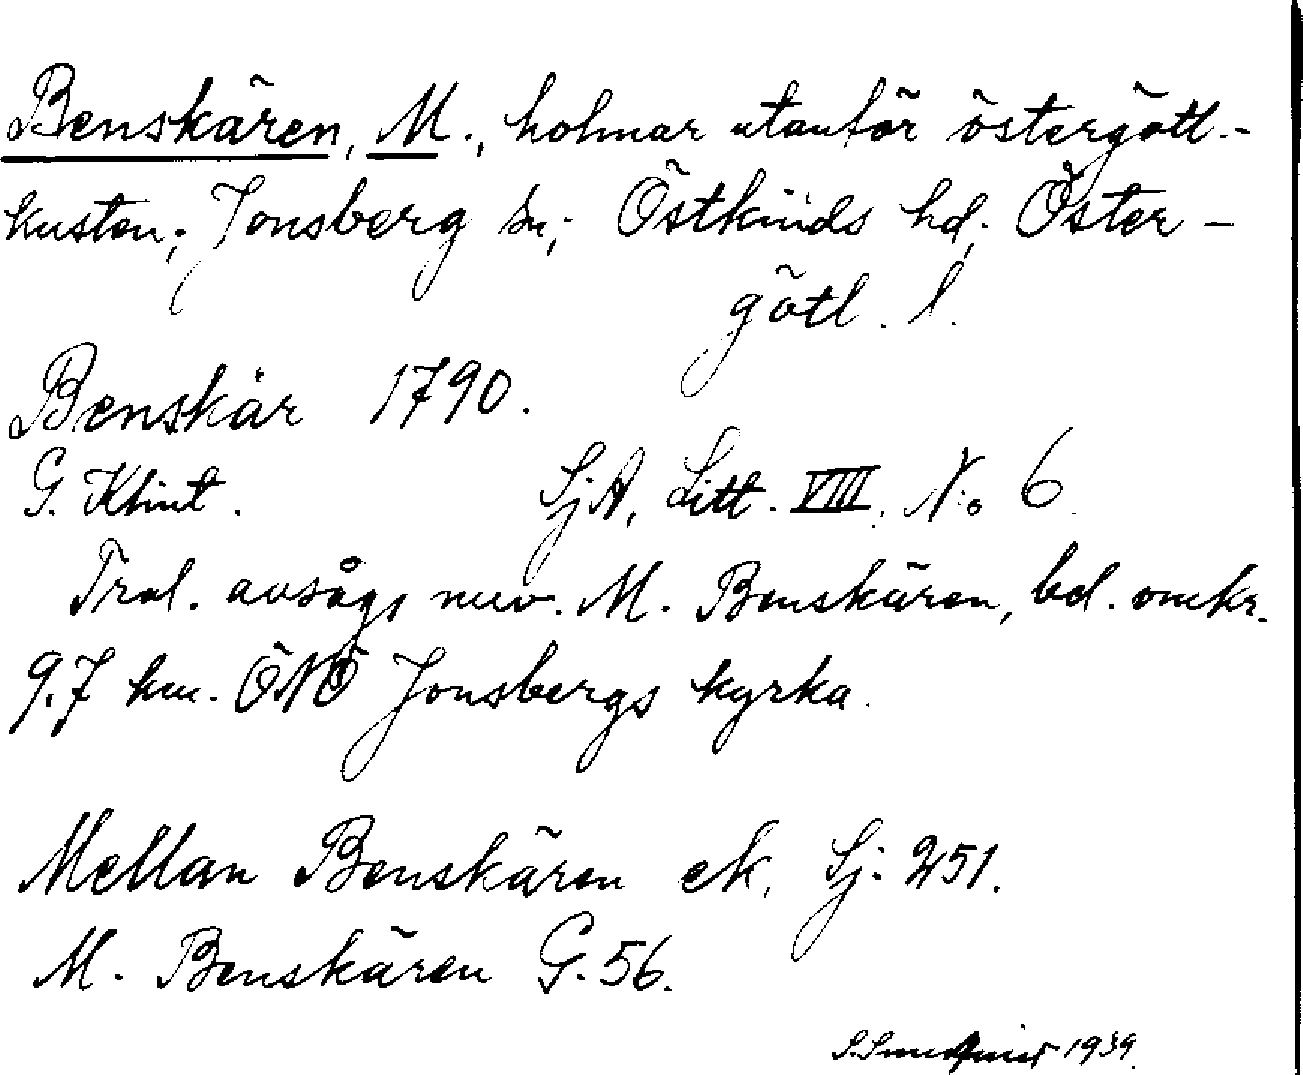 Benskären, M., holmar utanför östergötl.-
kusten; Jonsberg sn; Östkinds hd; Öster-
götl. l.
Benskär 1790.
G. Klint. SjA, Litt. VIII. No 6
Trol. avsågs nuv. M. Benskären, bel. omkr.
9,7 km. ÖNÖ Jonsbergs kyrka.
Mellan Benskären ek. Sj. 251.
M. Benskären G. 56.
1939.